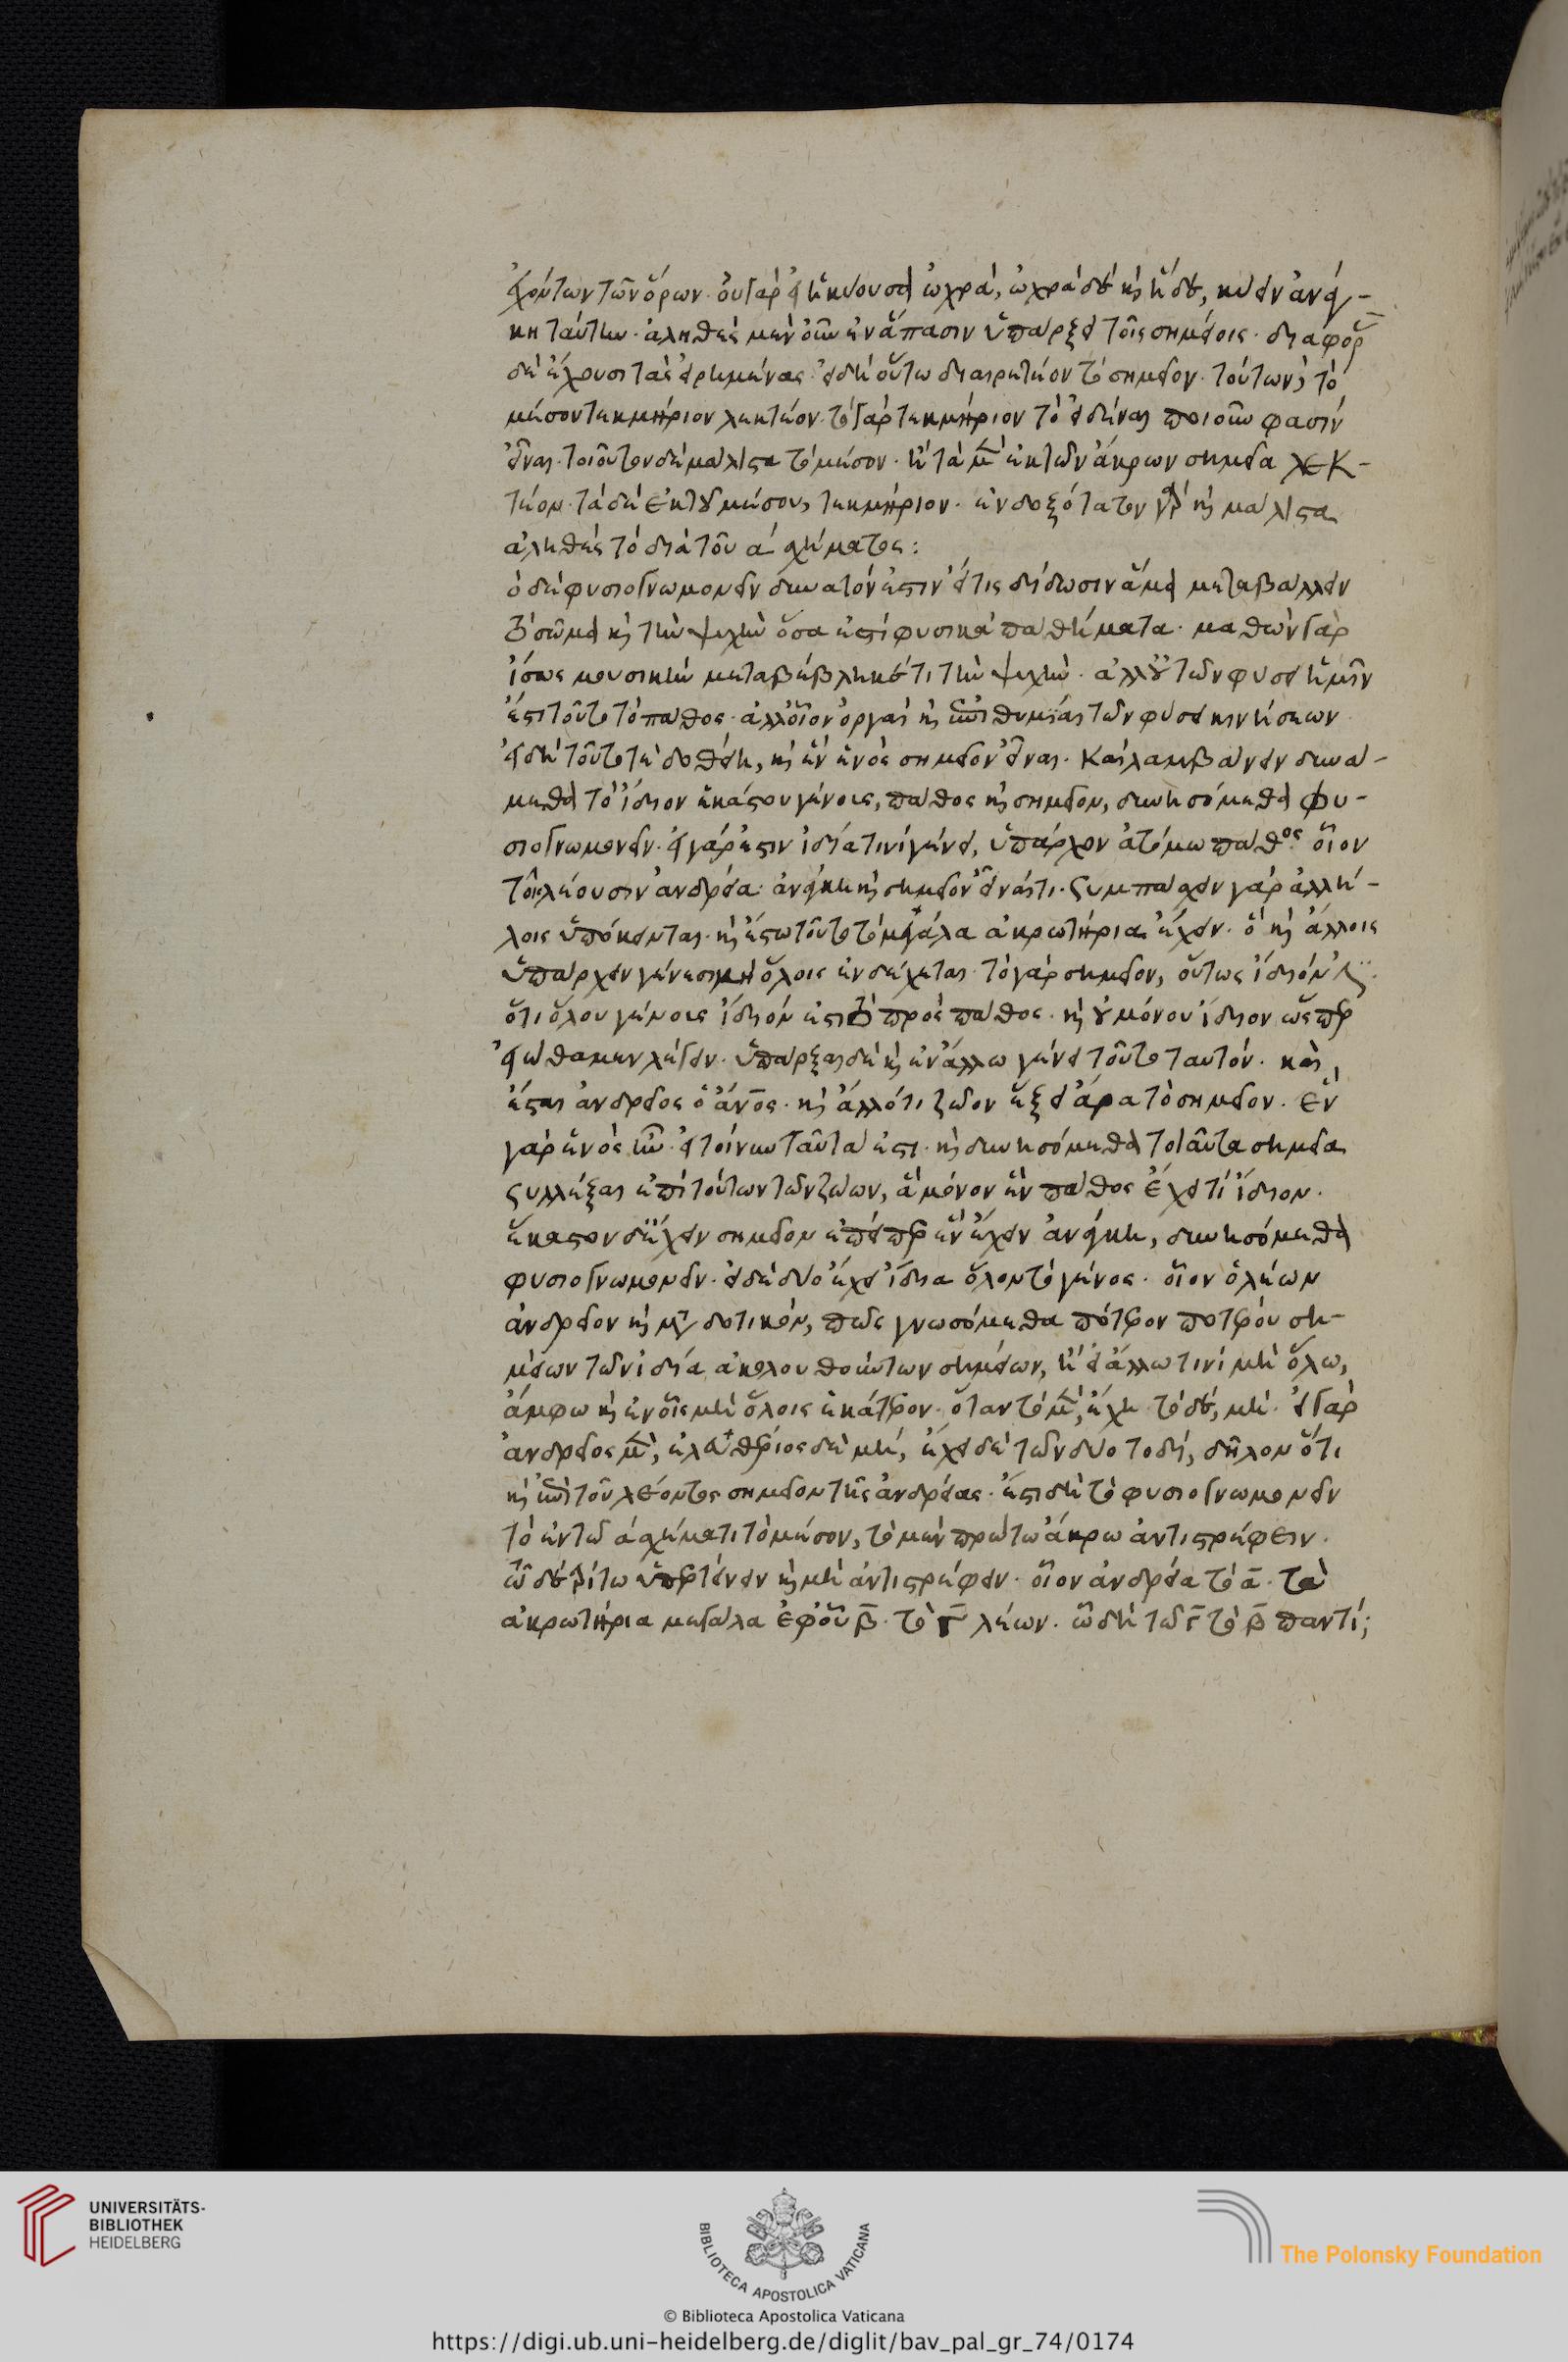 ἐχόντων τῶν ὅρων· οὐ γὰρ εἰ ἡ κύουσα ὠχρά, ὠχρὰ δὲ καὶ ἥδε, κύειν ἀνάγ-
κη ταύτην· ἀληθὲς μὲν οὖν ἐν ἅπασιν ὑπάρξει τοῖς σημείοις· διαφορ
δὲ ἔχουσι τὰς εἰρημένας· εἰ δὴ οὕτω διαιρετέον τὸ σημεῖον· τούτων δὲ τὸ
μέσον τεκμήριον λεκτέον· τὸ γὰρ τεκμήριον τὸ εἰδέναι ποιοῦν φασίν
εἶναι· τοιοῦτον δὲ μάλιστα τὸ μέσον· ἢ τὰ μὲν ἐκ τῶν ἄκρων σημεῖα λεκ-
τέον· τὰ δὲ ἐκ τοῦ μέσου, τεκμήριον· ἐνδοξότατον γὰρ καὶ μάλιστα
ἀληθὲς τὸ διὰ τοῦ α σχήματος:
ὁ δὲ φυσιογνωμονεῖν δυνατόν ἐστιν εἴ τις δίδωσιν ἅμα μεταβάλλειν
τὸ σῶμα καὶ τὴν ψυχὴν ὅσα ἐστὶ φυσικὰ παθήματα· μαθὼν γὰρ
ἴσως μουσικὴν μεταβέβληκέ τι τὴν ψυχήν· ἀλλ' οὐ τῶν φύσει ἡμῖν
ἐστι τοῦτο τὸ πάθος· ἀλλ' οἷον ὀργαὶ καὶ ἐπιθυμίαι τῶν φύσει κινήσεων
εἰ δὴ τοῦτό τε δοθείη, καὶ ἓν ἑνὸς σημεῖον εἶναι· καὶ λαμβάνειν δυνά-
μεθα τὸ ἴδιον ἑκάστου γένους, πάθος καὶ σημεῖον, δυνησόμεθα φυ-
σιογνωμονεῖν· εἰ γάρ ἐστιν ἰδίᾳ τινὶ γένει, ὑπάρχον ἀτόμω πάθος οἷον
τοῖς λέουσιν ἀνδρεία· ἀνάγκη καὶ σημεῖον εἶναί τι· συμπάσχειν γὰρ ἀλλή-
λοις ὑπόκειται· καὶ ἔστω τοῦτο τὸ μεγάλα ἀκρωτήρια ἔχειν· ὃ καὶ ἄλλοις
ὑπάρχειν γένεσι μὴ ὅλοις ἐνδέχεται· τὸ γὰρ σημεῖον, οὕτως ἴδιόν ἐστιν
ὅτι ὅλου γένους ἴδιόν ἐστι τὸ πρὸς πάθος· καὶ οὐ μόνου ἴδιον ὥσπερ
εἰώθαμεν λέγειν· ὑπάρξαι δὲ καὶ ἐν ἄλλω γένει τοῦτο ταυτόν· καὶ
ἔσται ἀνδρεῖος ὁ ἄνος· καὶ ἄλλό τι ζῶον ἕξει ἄρα τὸ σημεῖον· ἓν
γὰρ ἑνὸς ἦν· εἰ τοίνυν ταῦτά ἐστι· καὶ δυνησόμεθα τοιαῦτα σημεῖα
συλλέξαι ἐπὶ τούτων τῶν ζώων, ἃ μόνον ἓν πάθος ἔχει τι ἴδιον·
ἕκαστον δ' ἔχειν σημεῖον ἐπείπερ ἓν ἔχειν ἀνάγκη, δυνησόμεθα
φυσιογνωμονεῖν· εἰ δὲ δύο ἔχει ἴδια ὅλον τὸ γένος· οἷον ὁ λέων
ἀνδρεῖον καὶ μεταδοτικόν, πῶς γνωσόμεθα πότερον ποτέρου ση-
μεῖων τῶν ἰδίᾳ ἀκολουθούντων σημείων, ἢ εἰ ἄλλω τινὶ μὴ ὅλω,
ἄμφω καὶ ἐν οἷς μὴ ὅλοις ἑκάτερον· ὅταν τὸ μὲν ἔχη τὸ δὲ, μή· εἰ γὰρ
ἀνδρεῖος μὲν, ἐλευθέριος δὲ μή, ἔχει δὲ τῶν δύο τοδί, δῆλον ὅτι
καὶ ἐπὶ τοῦ λέοντος σημεῖον τῆς ἀνδρείας· ἔστι δὴ τὸ φυσιογνωμονεῖν
τὸ ἐν τῶ α σχήματι τὸ μέσον, τὸ μὲν πρώτω ἄκρω ἀντιστρέφειν·
τῶ δὲ τρίτω ὑπερτείνειν καὶ μὴ ἀντιστρέφειν· οἷον ἀνδρεία τὸ α· τὰ
ἀκρωτήρια μεγάλα ἐφ' οὗ β· τὸ γ λέων· ὧ δὴ τῶ γ τὸ β παντί;
UNIVERSITÄTS-
BIBLIOTHEK
HEIDELBERG
BIBLIOTECA APOSTOLICA VATICANA
The Polonsky Foundation
© Biblioteca Apostolica Vaticana
https://digi.ub.uni-heidelberg.de/diglit/bav_pal_gr_74/0174